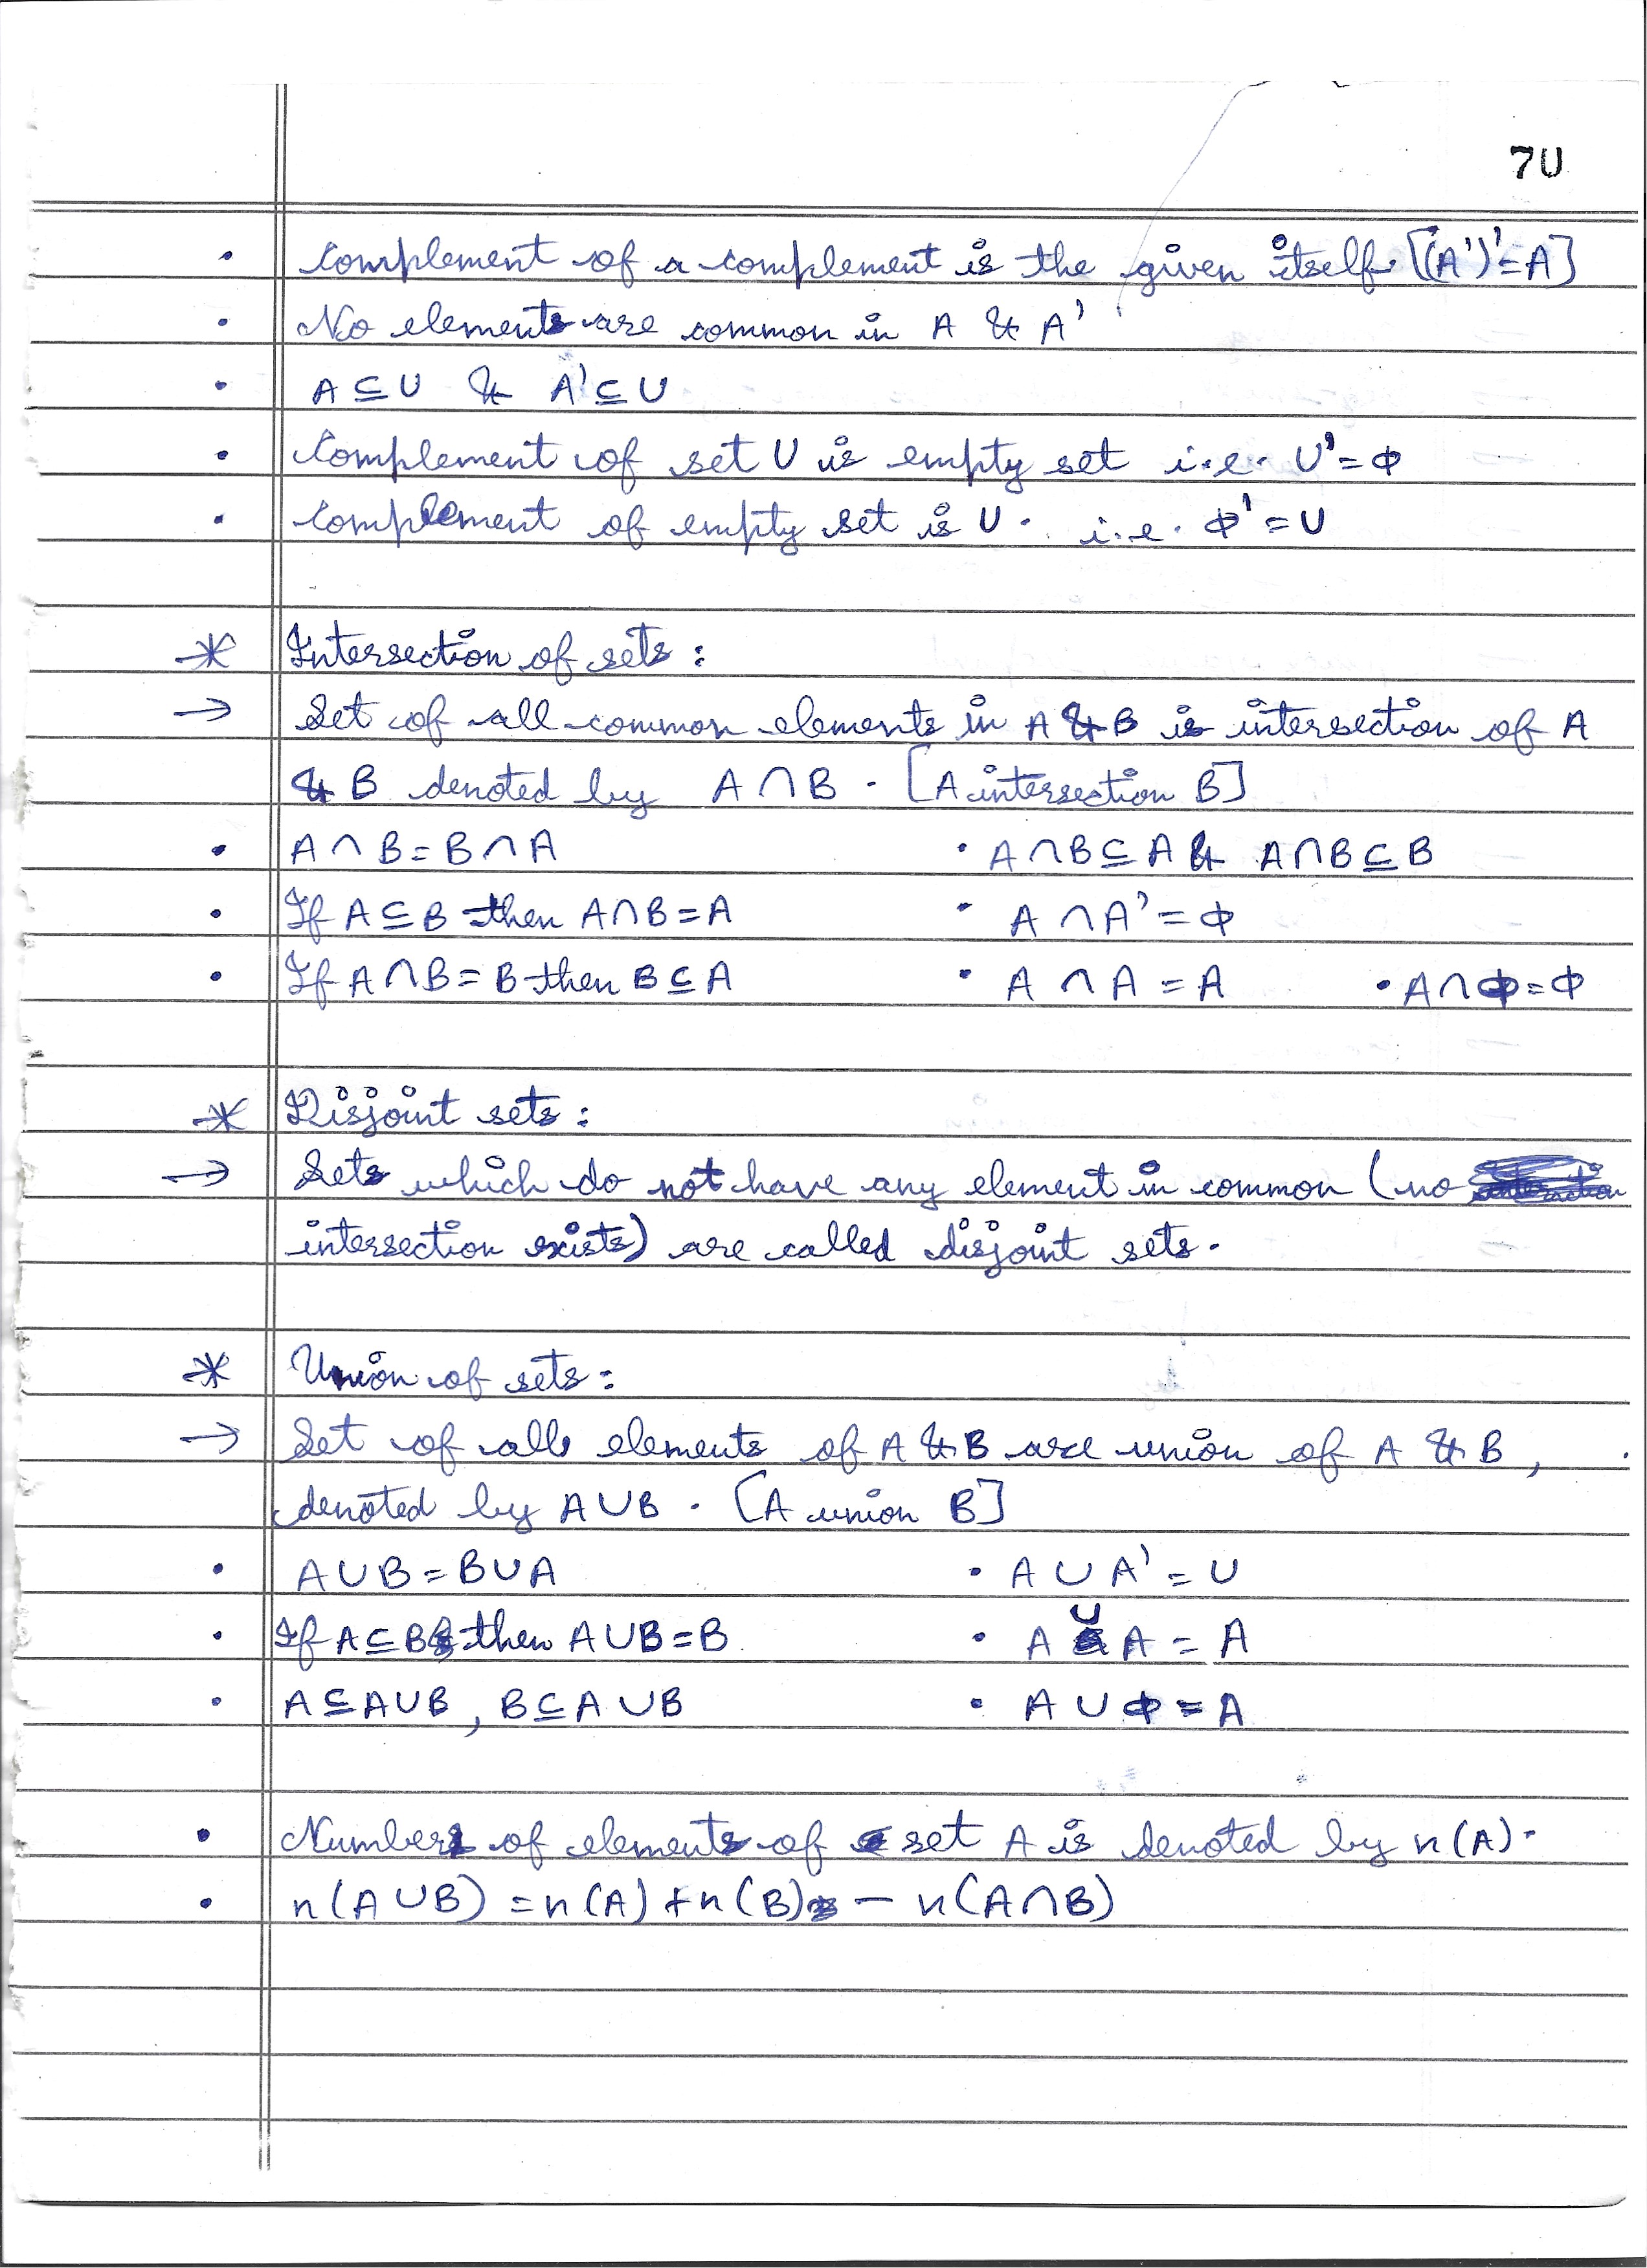 70
• Complement of a complement is the given itself. [(A')'=A]
• No elements are common in A & A'
• A ⊆ U & A' ⊆ U
• Complement of set U is empty set i.e. U' = ϕ
• Complement of empty set is U. i.e. ϕ' = U
* Intersection of sets :
→ Set of all common elements in A & B is intersection of A
& B denoted by A ∩ B. [A intersection B]
• A ∩ B = B ∩ A • A ∩ B ⊆ A & A ∩ B ⊆ B
• If A ⊆ B then A ∩ B = A • A ∩ A' = ϕ
• If A ∩ B = B then B ⊆ A • A ∩ A = A • A ∩ ϕ = ϕ
* Disjoint sets :
→ Sets which do not have any element in common (no
intersection exists) are called disjoint sets.
* Union of sets :
→ Set of all elements of A & B are union of A & B,
denoted by A ∪ B. [A union B]
• A ∪ B = B ∪ A • A ∪ A' = U
• If A ⊆ B then A ∪ B = B • A ∪ A = A
• A ⊆ A ∪ B, B ⊆ A ∪ B • A ∪ ϕ = A
• Number of elements of set A is denoted by n(A).
• n(A ∪ B) = n(A) + n(B) - n(A ∩ B)